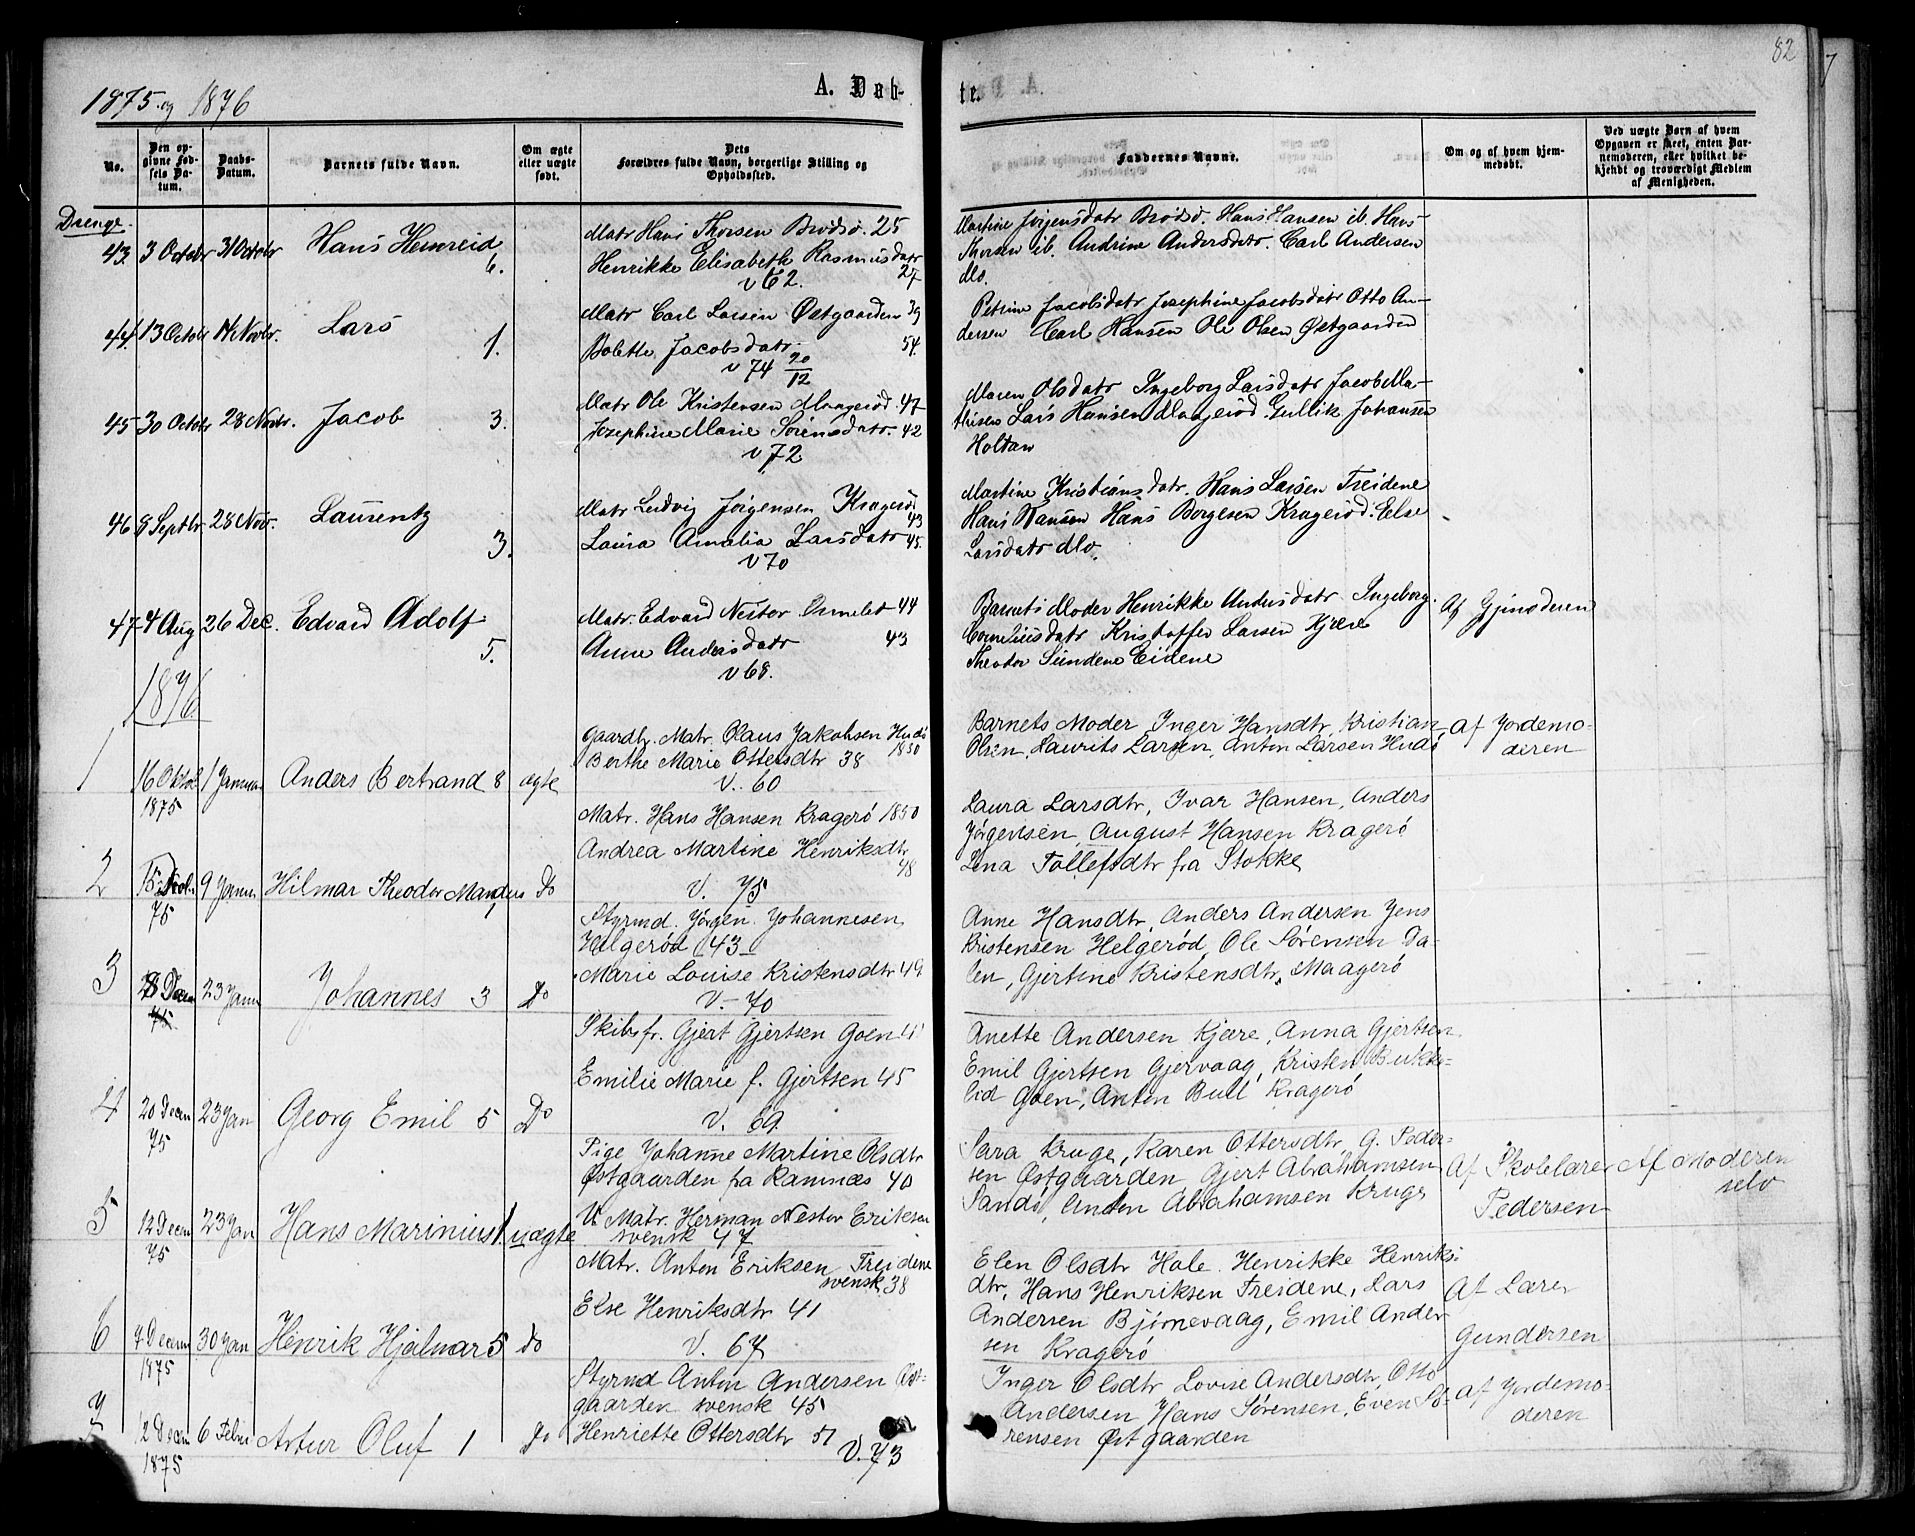 82
7
1875 og 1876
A. Døb-
te.
No.
Den op-
givne Fød-
sels Da-
tum.
Daabs-
Datum.
Barnets fulde Navn.
Om ægte
eller uægte
født.
Dets
Forældres fulde Navn, borgerlige Stilling og
Opholdssted.
Faddernes Navne.
Om og af hvem hjem-
medøbt.
Ved uægte Børn af hvem
Opgaven er skeet, enten Bar-
nemoderen, eller hvilket be-
kjendt og troværdigt Medlem
af Menigheden.
Drenge.
43. 3 Octobr 31 Octobr Hans Henreid 6.
Matr Hans Thorsen Brødsø. 25
Henrikke Elisabeth Rasmusdatr 27
v 62.
Martine Jørgensdatr Brødsø. Hans Hansen ib. Hans
Thorsen ib. Andrine Andersdatr. Carl Andersen
do.
44. 13 Octobr 14 Novbr. Lars 1.
Matr Carl Larsen Østgaarden 39
Bolette Jacobsdatr. 54.
v 74 20/12
Petrine Jacobsdatr Josephine Jacobsdatr Otto An-
dersen Carl Hansen Ole Olsen Østgaarden
45 30 Octobr 28 Novbr. Jacob 3.
Matr Ole Kristensen Maagerød 47
Josephine Marie Sørensdatr. 42
v 72
Maren Olsdatr Ingeborg Larsdatr Jacob Ma-
thisen Lars Hansen Maagerød. Gullik Johansen
Holtan
46 8 Septbr. 28 Nov. Laurentz 3.
Matr Ludvig Jørgensen Kragerød 43
Laura Amalia Larsdatr 45.
v 70
Martine Kristiansdatr. Hans Larsen Treidene
Hans Hansen Hans Borgesen Kragerød. Else
Larsdatr do.
47 4 Aug 26 Dec. Edvard Adolf 5.
Matr. Edvard Nestor 44
Anne Andersdatr 43
v 68.
Barnets Moder Henrikke Andersdatr Ingeborg
Corneliusdatr Kristoffer Larsen Kjære
Theodor Sundene Eidene
Af Gjmoderen
1876
1 16 Oktob 1875 1 Januar Anders Bertrand 8 ægte
Gaardb. Matr. Olaus Jakobsen Hudø 1830
Berthe Marie Ottersdtr 38
V. 60
Barnets Moder Inger Hansdtr, Kristian
Olsen, Laurits Larsen, Anton Larsen Hudø
Af Jordemo-
deren
2 75 9 Janu Hilmar Theodor Mandius 1 Do
Matr. Hans Hansen Kragerø 1850
Andrea Martine Henriksdtr 48
V. 75
Laura Larsdtr, Ivar Hansen, Anders
Jørgensen, August Hansen Kragerø
Lena Tollefsdtr fra Stokke
3 75 23 Janu Johannes 3 Do
Styrmd. Jørgen Johannesen
Helgerød 43
Marie Louise Kristensdtr 49
V. 70
Anne Hansdtr, Anders Andersen Jens
Kristensen Helgerød, Ole Sørensen Da-
len, Gjertine Kristensdtr, Maagerø
4 20 Decm 75 23 Jan Georg Emil 5 Do
Skibsf. Gjert Gjertsen Goen 41
Emilie Marie f. Gjertsen 45
V. 69
Anette Andersen Kjære, Anna Gjertsen
Emil Gjertsen Gjervaag, Kristen Bukke-
lid Goen, Anton Bull Kragerø
5 12 Decm 75 23 Jan Hans Marinius 1. uægte
Pige Johanne Martine Olsdtr
Østgaarden fra Ramnæs 40
U. Matr. Herman Nestor Eriksen
svensk 47
Sara Kruge, Karen Ottersdtr, G. Peder-
sen Østgaarden, Gjert Abrahamsen
Sandø, Anton Abrahamsen Kruge
Af Skolelærer
Pedersen
Af Moderen
selv
6 7 Decm 1875 30 Jan Henrik Hjalmar 5 do
Matr. Anton Eriksen Treidene
svensk 38
Else Henriksdtr 41
V. 67
Elen Olsdtr Hole Henrikke Henriks-
dtr, Hans Henriksen Treidene, Lars
Andersen Bjørnevaag, Emil Ander
sen Kragerø
Af Lærer
Gundersen
7 12 Decm 1875 6 Febru Artur Oluf 1 Do
Styrmd Anton Andersen Øst-
gaarden svensk 45
Henriette Ottersdtr 51
V. 73
Inger Olsdtr Lovise Andersdtr, Otto
Andersen, Hans Sørensen, Even Sø-
rensen Østgaarden
Af Jordemo-
deren